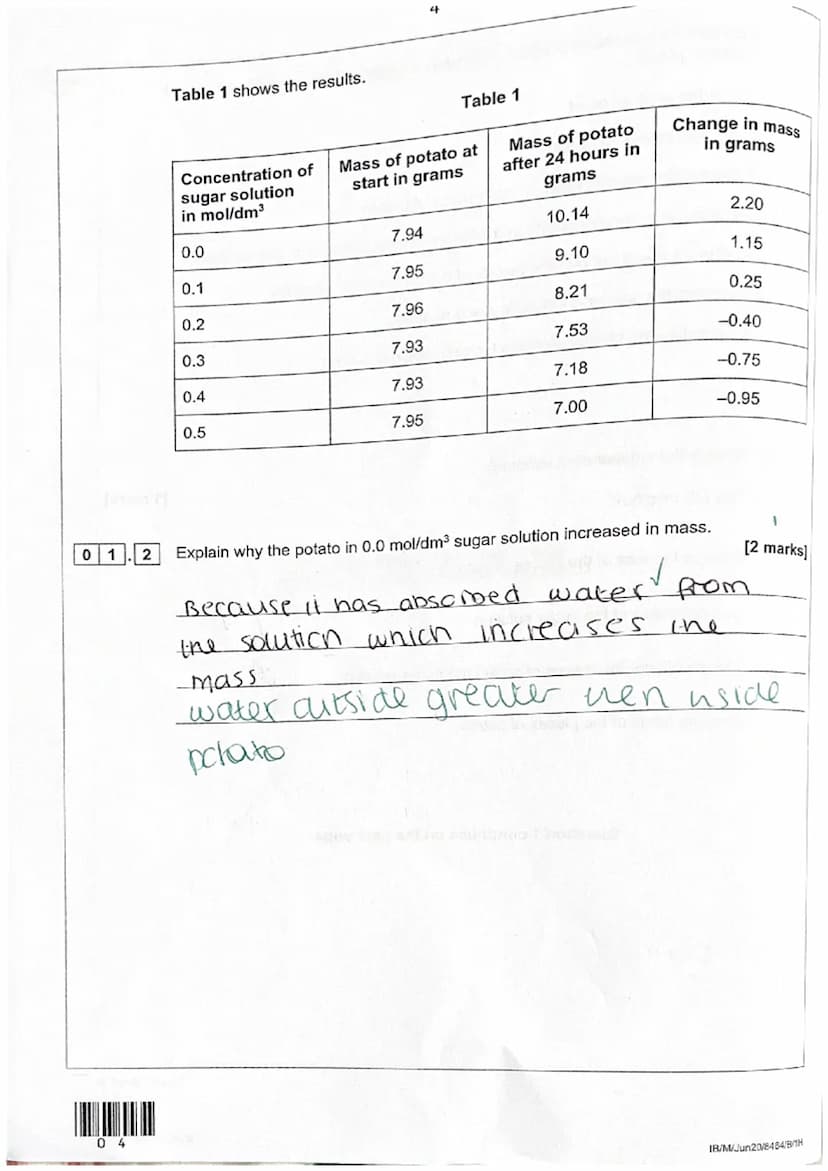 4
Table 1 shows the results.
Table 1
Concentration of sugar solution in mol/dm³ Mass of potato at start in grams Mass of potato after 24 hours in grams Change in mass in grams
0.0 7.94 10.14 2.20
0.1 7.95 9.10 1.15
0.2 7.96 8.21 0.25
0.3 7.93 7.53 –0.40
0.4 7.93 7.18 –0.75
0.5 7.95 7.00 –0.95
0 1 . 2 Explain why the potato in 0.0 mol/dm³ sugar solution increased in mass.
1
[2 marks]
Because it has absorbed water ✓ from
the solution which increases the
mass
water outside greater then inside
potato
0 4
IB/M/Jun20/8464/B/1H